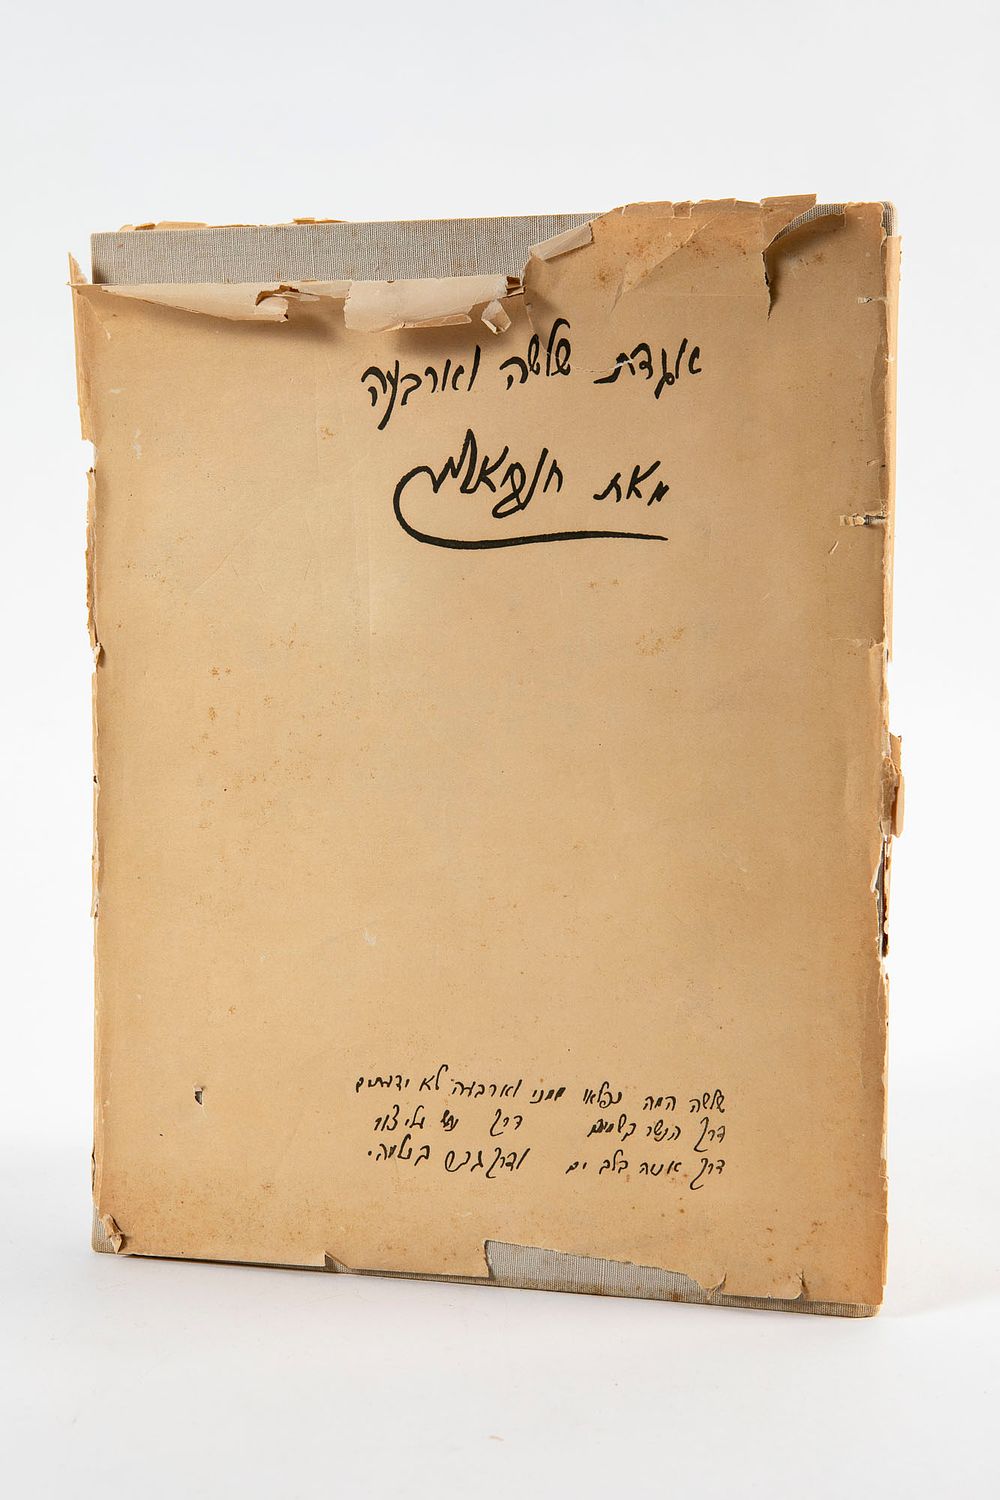 אגדת שלשה וארבעה
מאת ח.נ. ביאליק
שלשה המה נפלאו ממני וארבעה לא ידעתים
דרך הנשר בשמים דרך נחש עלי צור
דרך אניה בלב ים ודרך גבר בעלמה.